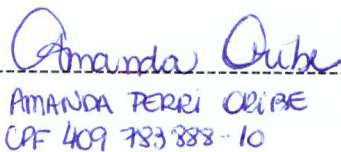 Amanda Oribe
AMANDA PERRI ORIBE
CPF 409 783 888-10